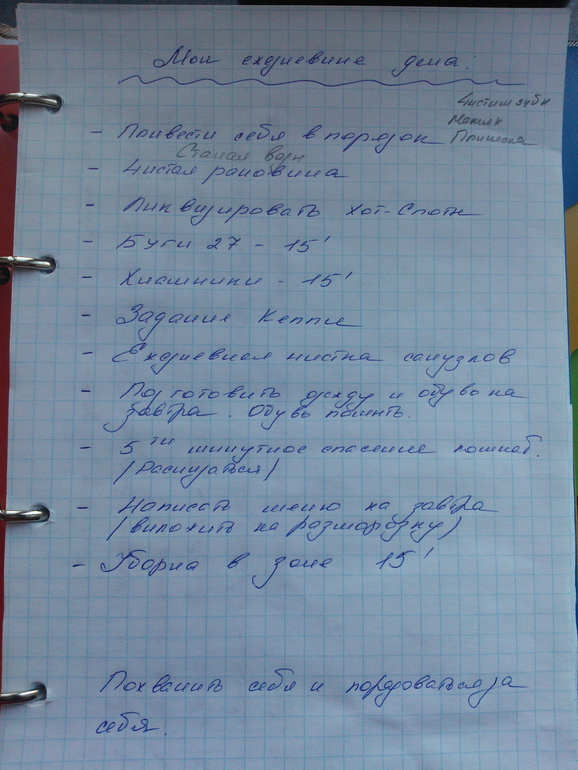 Мои ежедневные дела:
Чистим зубы
Макияж
Прическа
- Привести себя в порядок
Стакан воды
- Чистая раковина
- Ликвидировать Хот-Споты
- Буги 27 - 15'
- Хламники - 15'
- Задания Келли
- Ежедневная чистка санузлов
- Подготовить одежду и обувь на
завтра. Обувь помыть.
- 5ти минутное спасение комнат.
(Расхламиться)
- Написать меню на завтра
(выложить на разморозку)
- Уборка в зоне 15'
Похвалить себя и порадоваться за
себя.